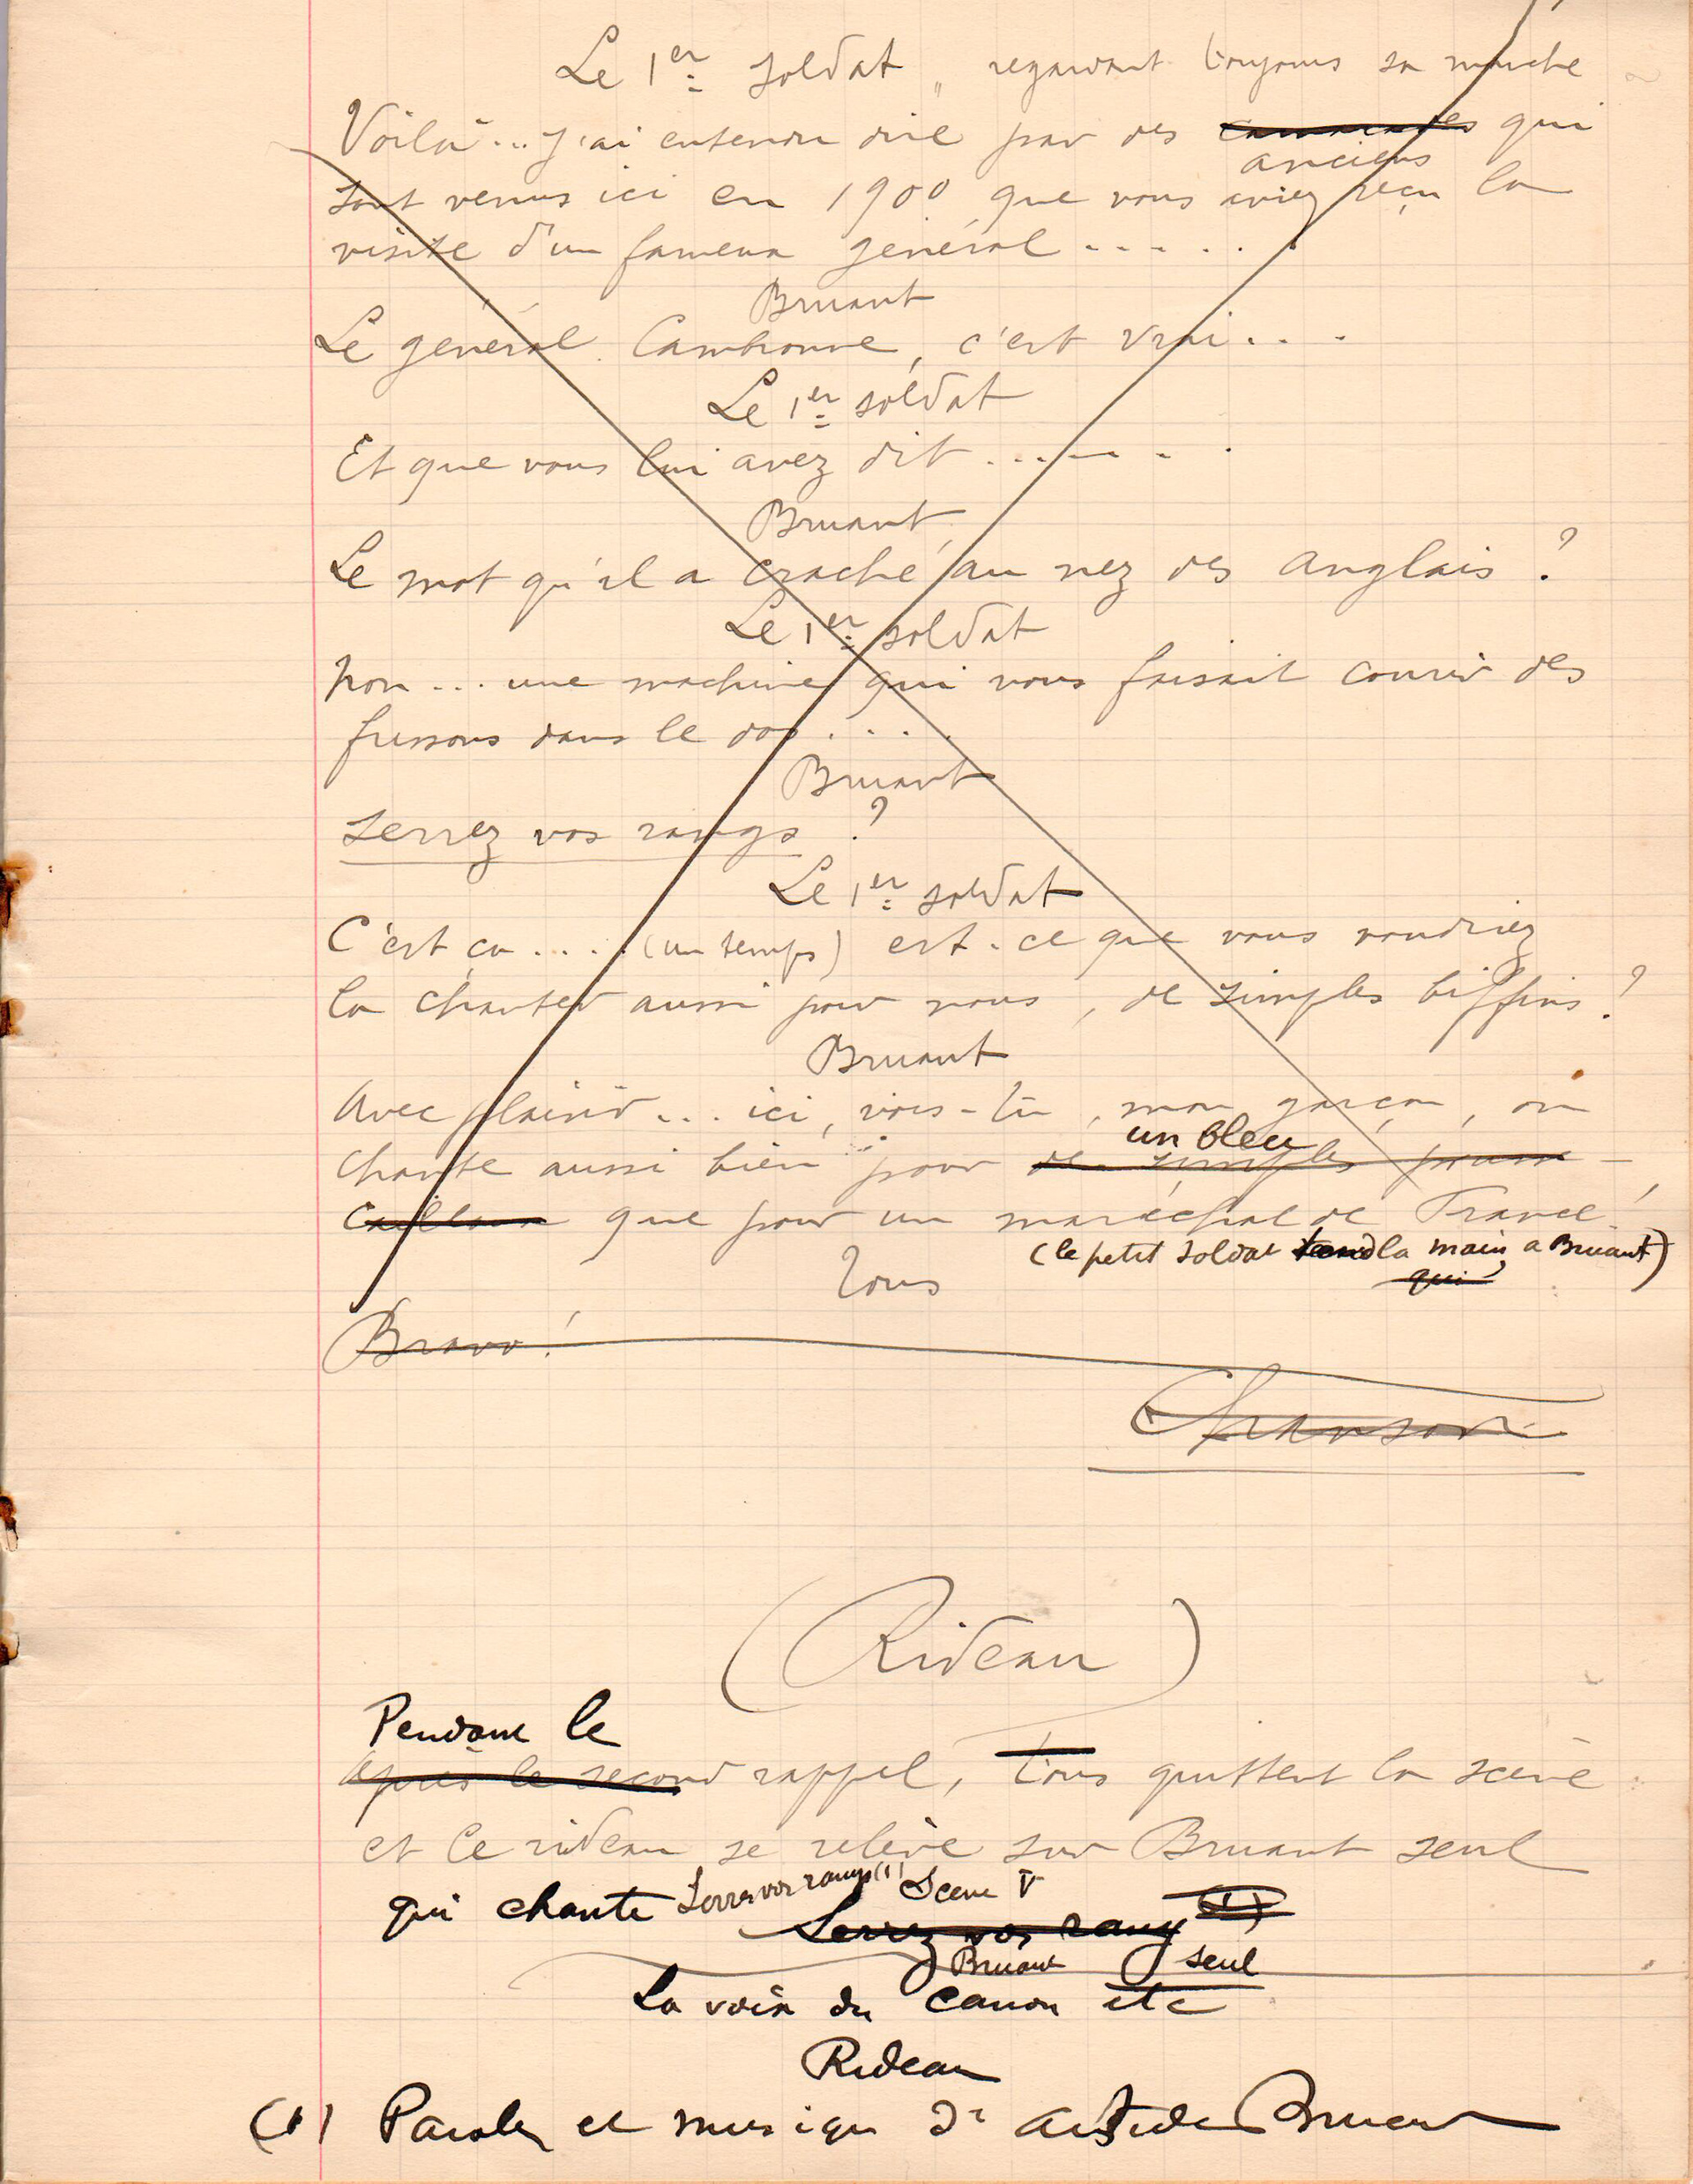 Le 1er soldat, regardant toujours sa manche
Voilà... j'ai entendu dire par des camarades qui
anciens
sont venus ici en 1900 que vous aviez reçu la
visite d'un fameux général ......
Bruant
Le général Cambronne, c'est vrai...
Le 1er soldat
Et que vous lui avez dit .......
Bruant
Le mot qu'il a craché au nez des anglais ?
Le 1er soldat
Non... une machine qui vous faisait courir des
frissons dans le dos ....
Bruant
Serrez vos rangs ?
Le 1er soldat
C'est ça .... (un temps) est-ce que vous voudriez
la chanter aussi pour nous, de simples biffins ?
Bruant
Avec plaisir... ici, vois-tu, mon garçon, on
un bleu
chante aussi bien pour de simples pousse-
cailloux que pour un maréchal de France !
(le petit soldat tend la main à Bruant)
qui
Tous
Bravo !
Chanson
(Rideau)
Pendant le
après le second rappel, tous quittent la scène
et le rideau se relève sur Bruant seul
qui chante Serrez vos rangs (1) Scène V
Serrez vos rangs (1)
Bruant seul
La voix du canon etc
Rideau
(1) Paroles et musique d' Aristide Bruant